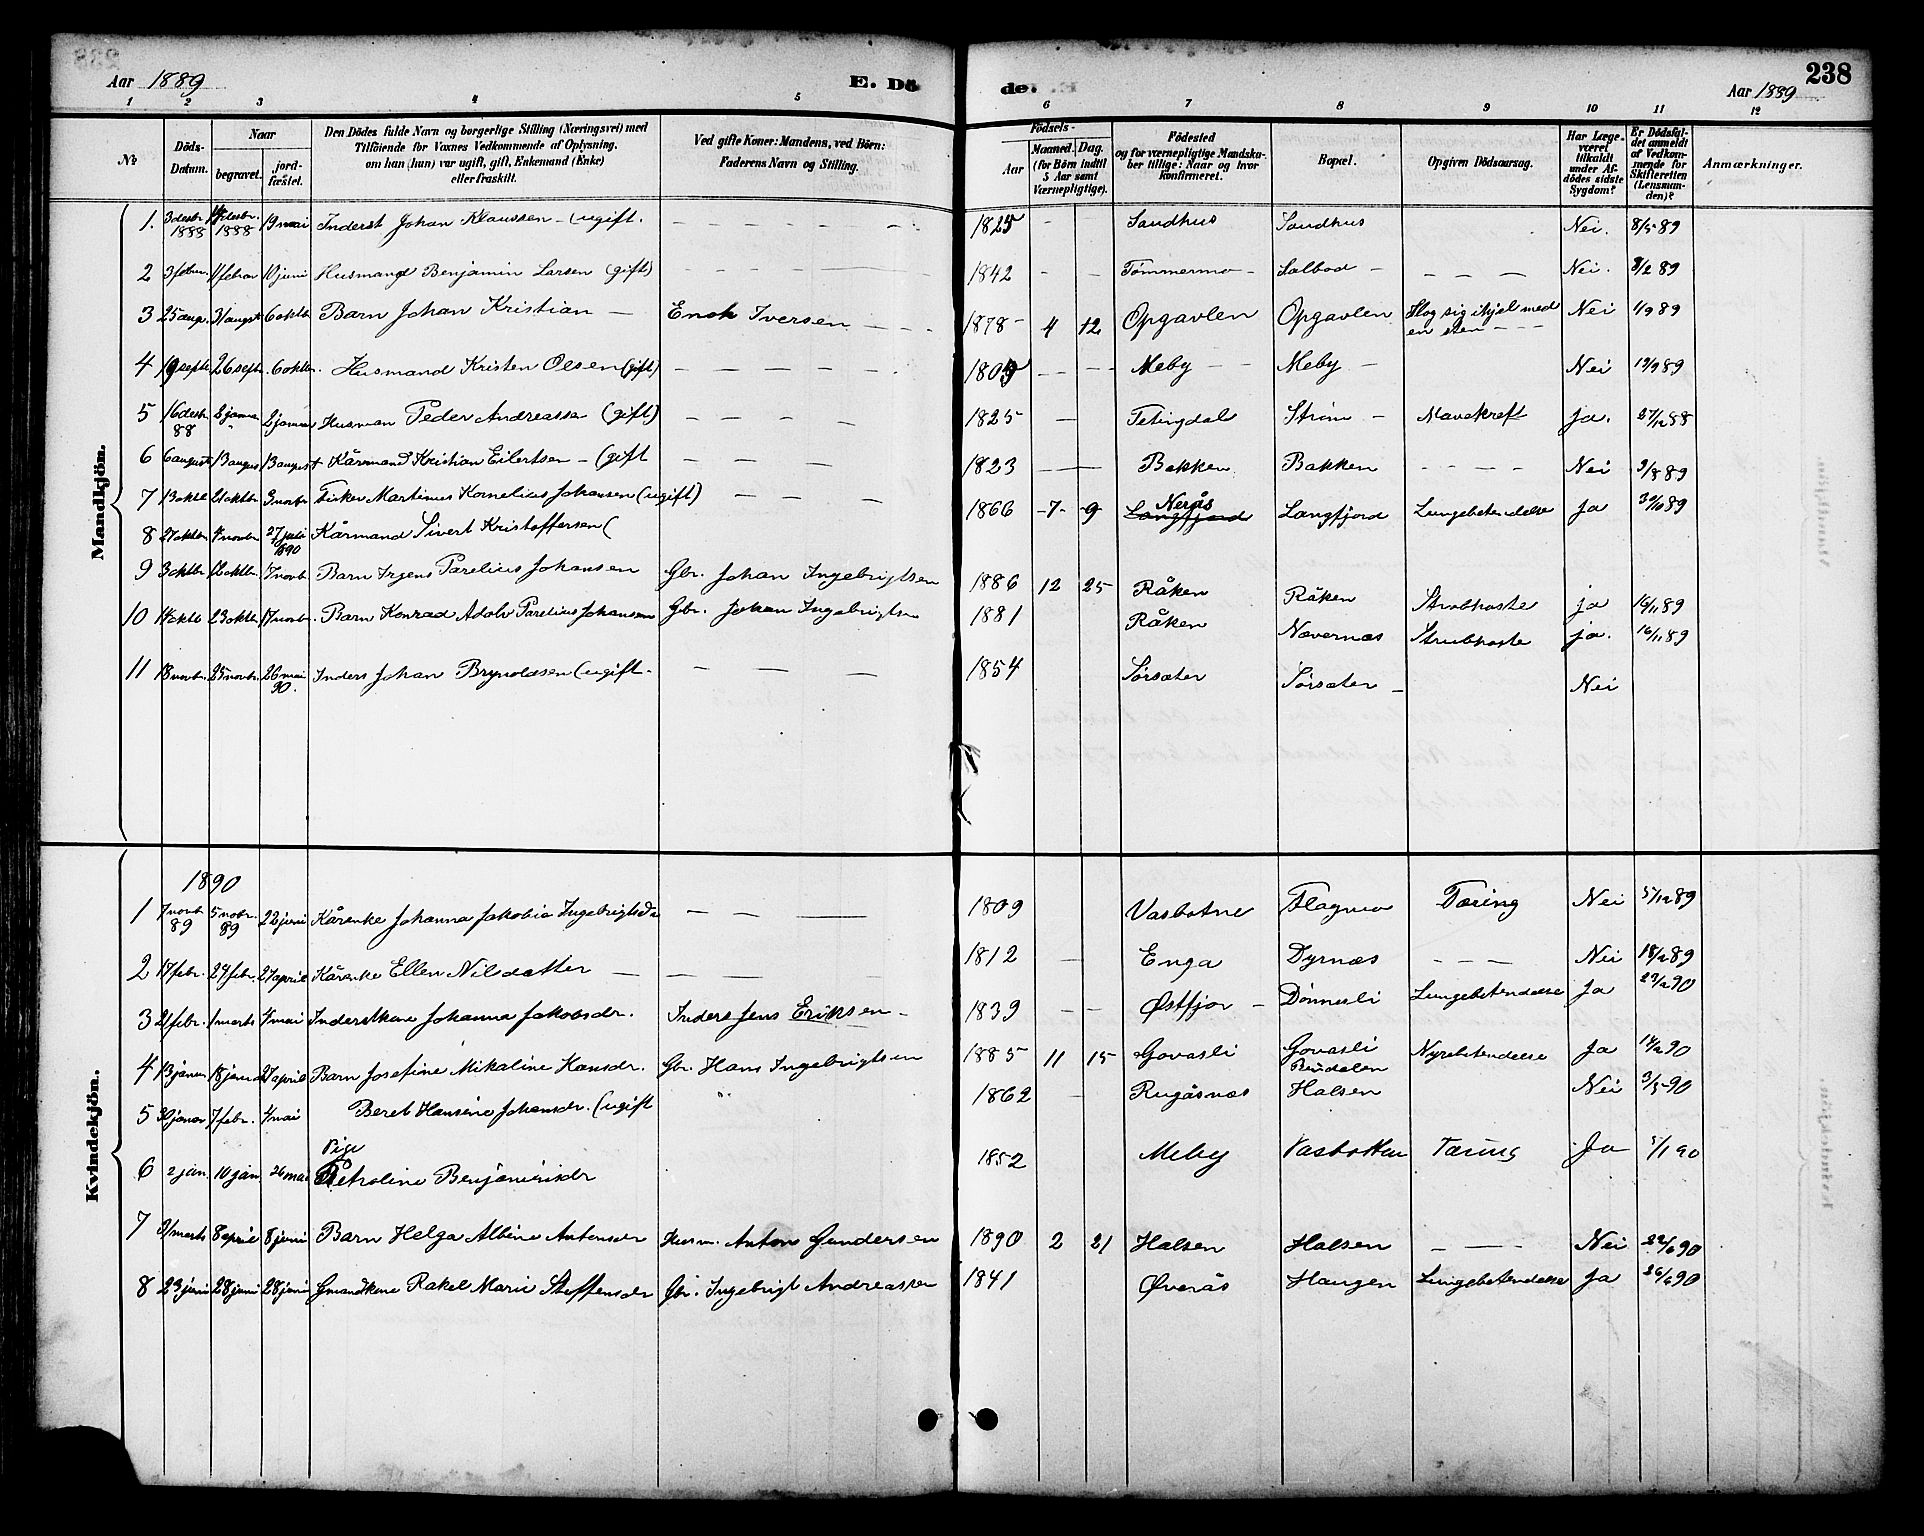 238
Aar 1889
E. Dö
de.
Aar 1889
1 2 3 4 5 6 7 8 9 10 11 12
No
Döds-Datum.
Naar
begravet.
jord-fæstet.
Den Dödes fulde Navn og borgerlige Stilling (Næringsvei) med
Tilföiende for Voxnes Vedkommende af Oplysning,
om han (hun) var ugift, gift, Enkemand (Enke)
eller fraskilt.
Ved gifte Koner: Mandens, ved Börn:
Faderens Navn og Stilling.
Födsels-
Aar
Maaned. Dag.
(for Börn indtil
5 Aar samt
Værnepligtige).
Födested
og for værnepligtige Mandska-
ber tillige: Naar og hvor
konfirmeret.
Bopæl.
Opgiven Dödsaarsag.
Har Læge
været
tilkaldt
under Af-
dödes sidste
Sygdom?
Er Dödsfal-
det anmeldt
af Vedkom-
mende for
Skifteretten
(Lensman-
den)?
Anmærkninger.
Mandkjön.
1. 3 desbr. 1888 14 desbr. 1888 19 mai Inderst Johan Klaussen – (ugift. – – – – – 1825 – – Sandhus Sandhus Nei. 8/5 89
2 3 febr. 11 febr 10 juni Husmand Benjamin Larsen (gift) – – – – 1842 – – Tømmermo – Salbod – – – – Nei. 8/2 89
3 25 aug. 31 augst 6 oktb Barn Johan Kristian – Enok Iversen – – – 1878 – 4 12 Opgavlen Opgavlen Slog sig ihjel med en sten – – – Nei 1/9 89
4 19 septb 26 sept. 6 oktbr. Husmand Kristen Olsen (gift) – – – – – – – Meby – – Meby – Nei 19/9 89
5 16 desb. 88 2 januar 2 januar Husman Peder Andreassen (gift) – – – 1825 – Tetingdal Strøm – Mavekreft ja. 27/12 88
6 6 august 13 august 13 august Kårmand Kristian Eilertsen – (gift – – – 1823 – – Bakken Bakken – – – – Nei 9/8 89
7 13 oktb 21 oktbr 3 novbr Fisker Martinus Kornelius Johansen (ugift) – – – 1866 – 7 – 9 Nerås Langfjord Langfjord Lungebetendelse Ja 30/10 89
8 27 oktbr 4 novbr 27 juli 1890 Kårmand Sivert Kristoffersen (
9 3 oktbr 12 oktbr. 17 novb. Barn Irgens Parelius Johansen Gbr. Johan Ingebrigtsen 1886 12 25 Råken Råken Strubhoste ja 16/11 89
10 14 oktb 23 oktb 17 novbr. Barn Konrad Adolv Parelius Johansen Gbr. Johan Ingebrigtsen 1881 Råken Navernæs Strubhoste ja. 16/11 89
11 18 novbr. 25 novbr. 26 mai 90. Inders Johan Brynoldsen (ugift – – – – 1854 Sørsæter Sørsæter – Nei
Kvindekjön.
1890
1 7 novb 89 5 nobr. 89 22 juni Kårenke Johanna Jakobia Ingebrigtsda – – – 1809 Vasbotne Flagmo Tæring Nei 5/12 89
2 17 febr. 24 febr. 27 april Kårenke Ellen Nilsdatter – – – – 1812 – Enga Dyrnæs – – – Nei 18/2 89
3 21 febr. 1 marts 4 mai Inderstkone Johanna Jakobsdr. Inders Jens Eriksen – 1839 – – Østfjor – Dønnesli Lungebetendelse Ja 29/2 90
4 13 januar 18 januar 27 april Barn Josefine Mikaline Hansdr. Gbr. Hans Ingebrigtsen 1885 11 15 Govasli Govasli Nyrebetendelse Ja 14/2 90
5 30 januar 7 febr. 4 mai Beret Hansine Johansdr. (ugift " 1862 – Rugåsnæs Halsen Nei 3/5 90
6 2 jan. 10 jan 26 mai Pige Petroline Benjaminsdr 1852 Meby Vasbotten Tæring Ja 5/1 90
7 marts 8 april 8 juni Barn Helga Albine Antonsdr Husm. Anton Gundersen 1890 2 21 Halsen Halsen – – – Nei 22/6 90
8 23 juni 28 juni 28 juni Gmandkone Rakel Marie Steffensdr Gbr. Ingebrigt Andreassen 1841 Øverås Haugen Lungebetendelse Ja 26/6 90